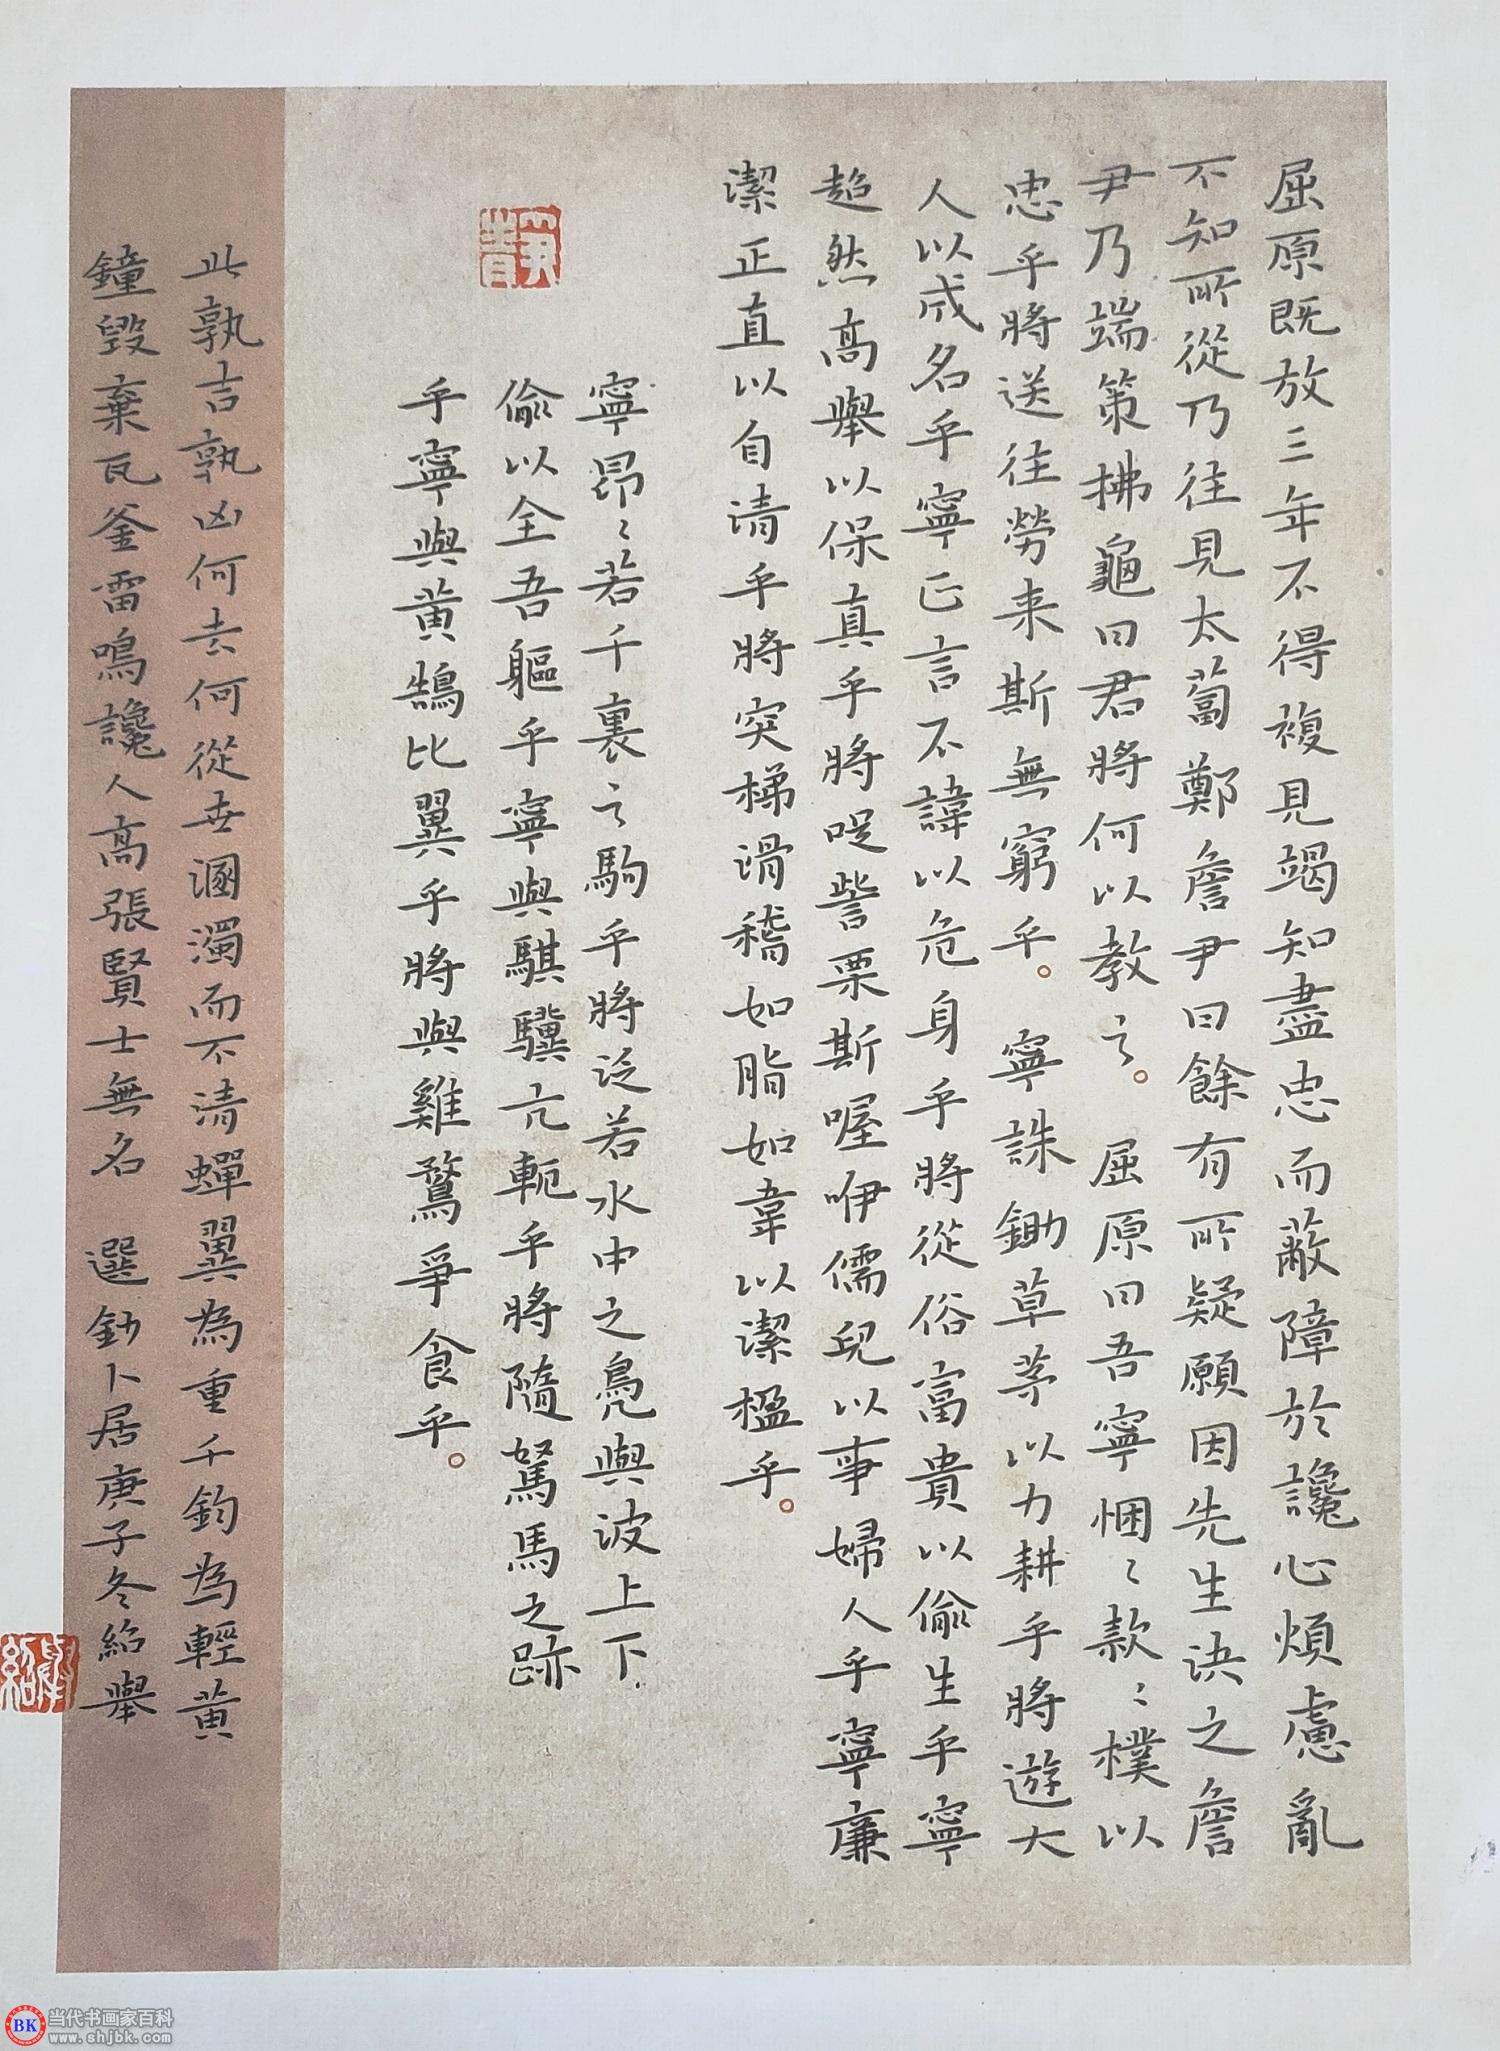 屈原既放三年不得複見竭知盡忠而蔽障於讒心煩慮亂
不知所從乃往見太蔔鄭詹尹曰餘有所疑願因先生决之詹
尹乃端策拂龜曰君將何以教之。屈原曰吾寧悃〻款〻樸以
忠乎將送往勞来斯無窮乎。寧誅鋤草茅以力耕乎將遊大
人以成名乎寧正言不諱以危身乎將從俗富貴以偷生乎寧
超然高舉以保真乎將哫訾栗斯喔咿儒兒以事婦人乎寧廉
潔正直以自清乎將突梯滑稽如脂如韋以潔楹乎。
寧昂〻若千裏之駒乎將泛若水中之鳧與波上下
偷以全吾軀乎寧與騏驥亢軛乎將隨駑馬之跡
乎寧與黃鵠比翼乎將與雞鶩爭食乎。
此孰吉孰凶何去何從世溷濁而不清蟬翼為重千鈞為輕黃
鐘毀棄瓦釜雷鳴讒人高張賢士無名 選鈔卜居庚子冬紹舉
紹舉
BK
当代书画家百科
www.shjbk.com